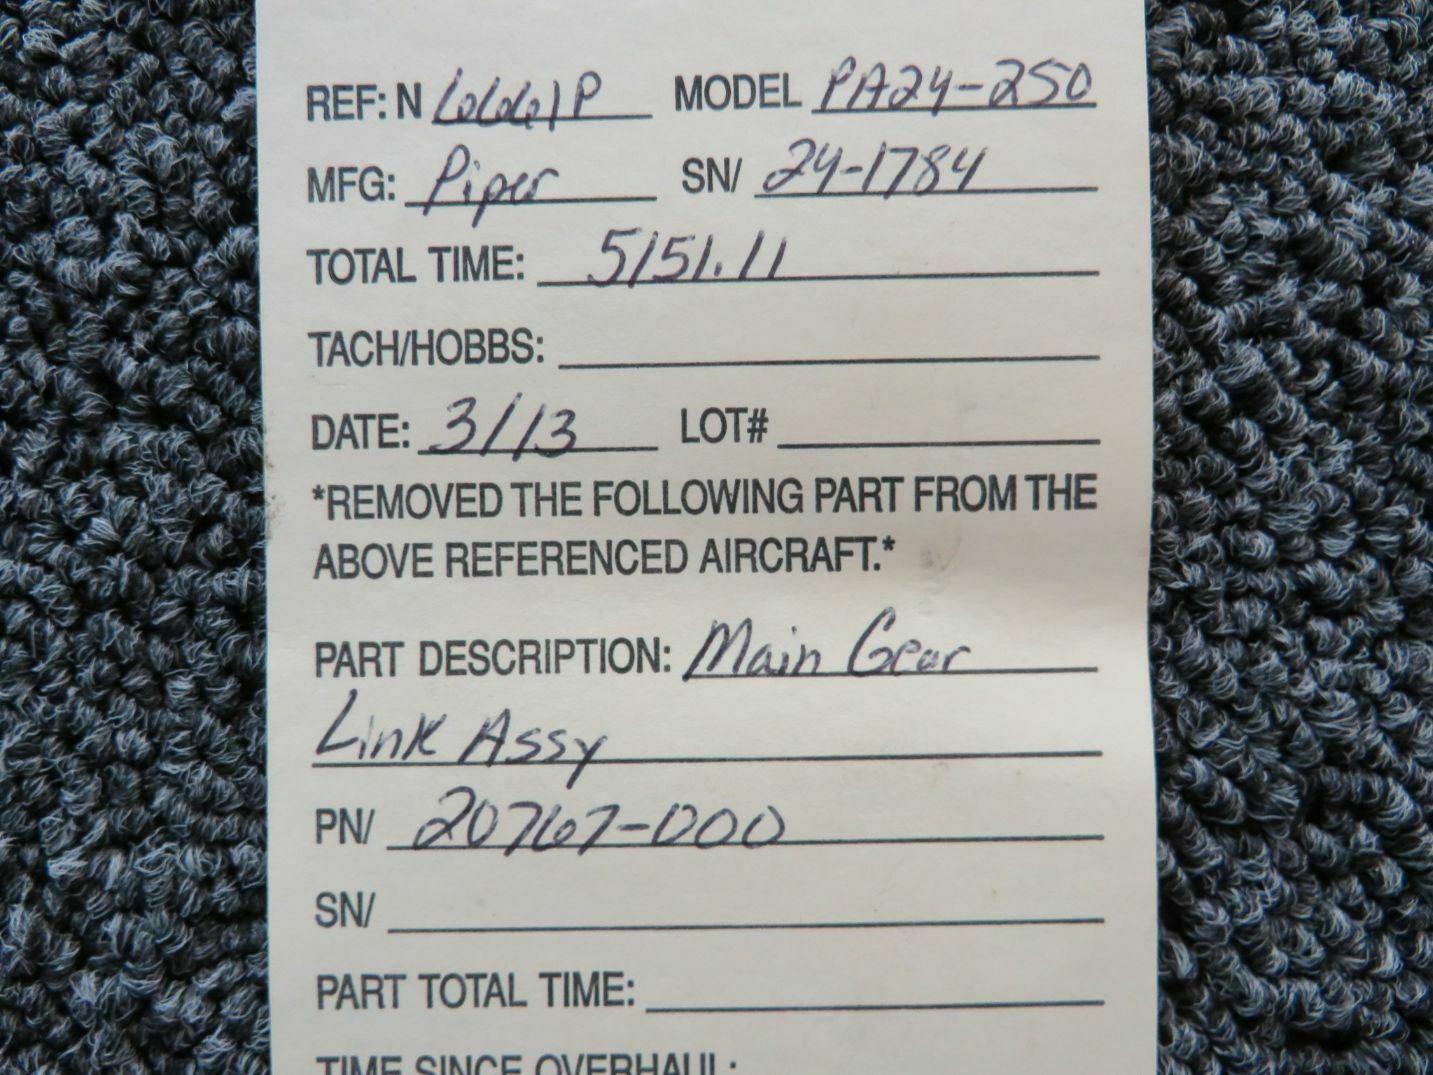 REF: N 6661P MODEL PA24-250
MFG: Piper SN/ 24-1784
TOTAL TIME: 5151.11
TACH/HOBBS:
DATE: 3/13 LOT#
*REMOVED THE FOLLOWING PART FROM THE
ABOVE REFERENCED AIRCRAFT.*
PART DESCRIPTION: Main Gear
Link Assy
PN/ 20767-000
SN/
PART TOTAL TIME:
TIME SINCE OVERHAUL: